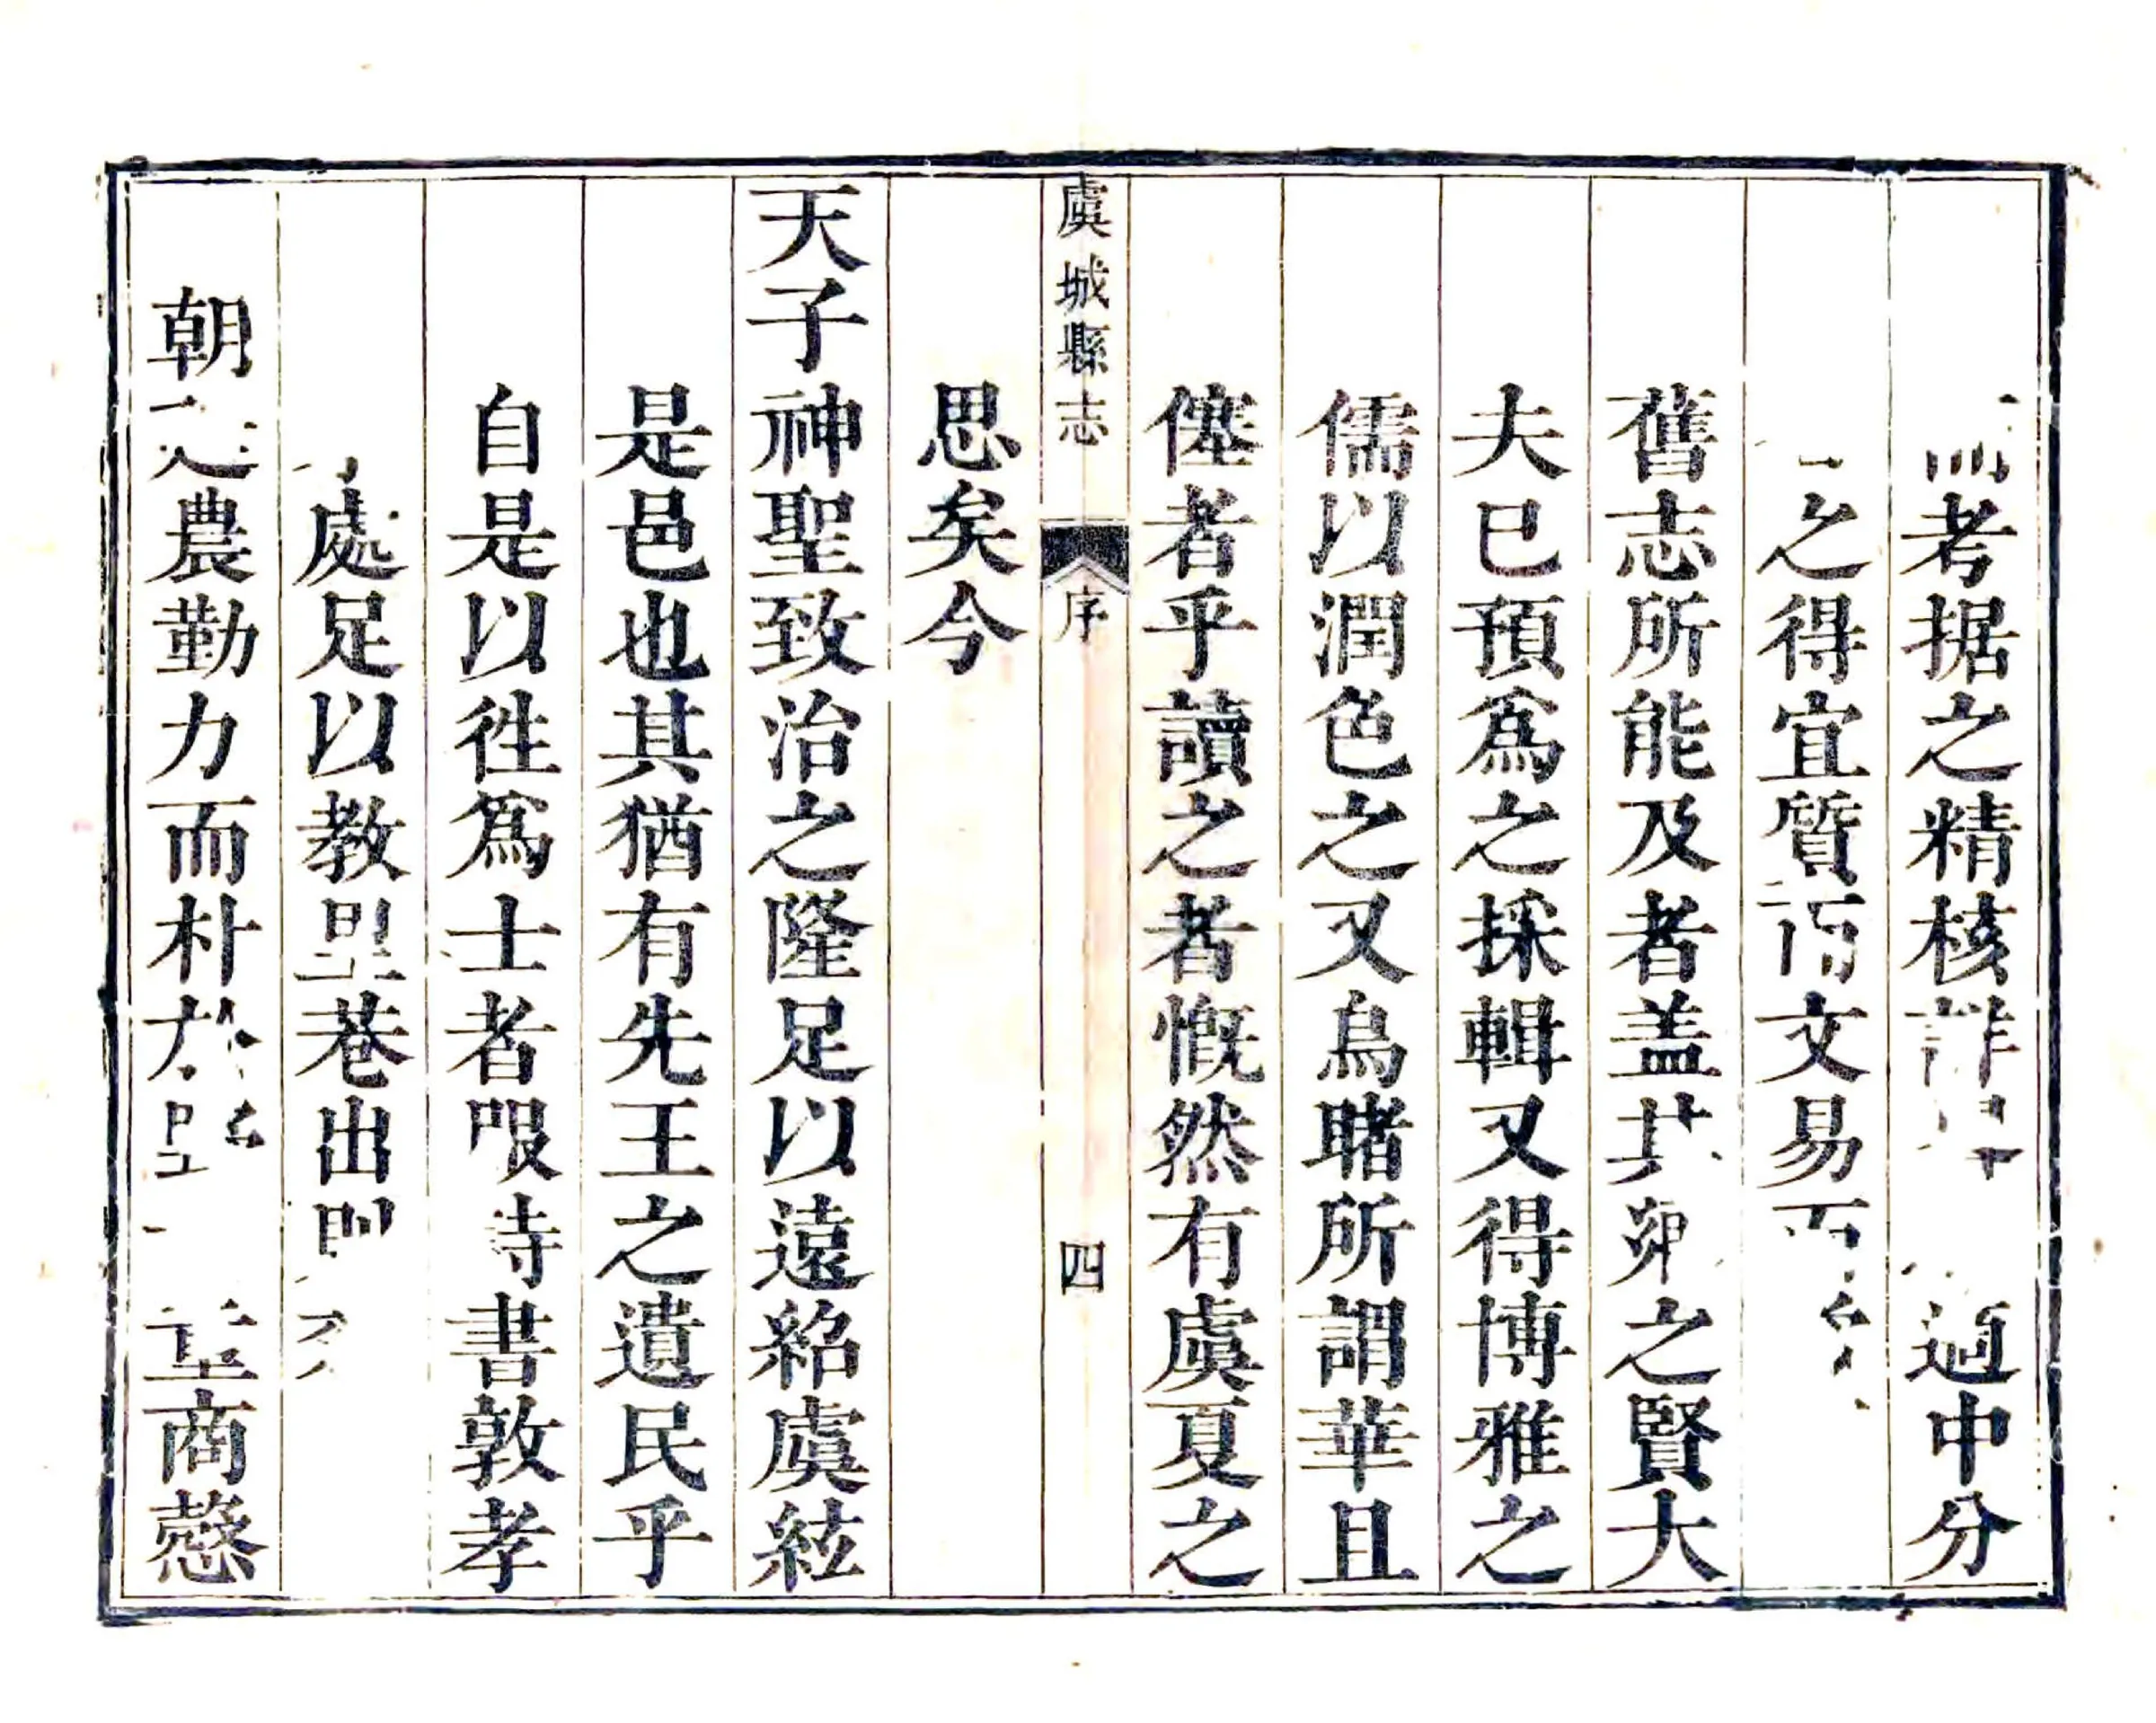 考据之精核詳適中分
之得宜質而文易而
舊志所能及者盖其鄉之賢大
夫已預爲之採輯又得博雅之
儒以潤色之又烏睹所謂華且
僿者乎讀之者慨然有虞夏之
思矣今
虞城縣志 序 四
天子神聖致治之隆足以遠紹虞紘
是邑也其猶有先王之遺民乎
自是以徃爲士者服詩書敦孝
處足以教里巷出則
朝之農勤力而朴於商慤